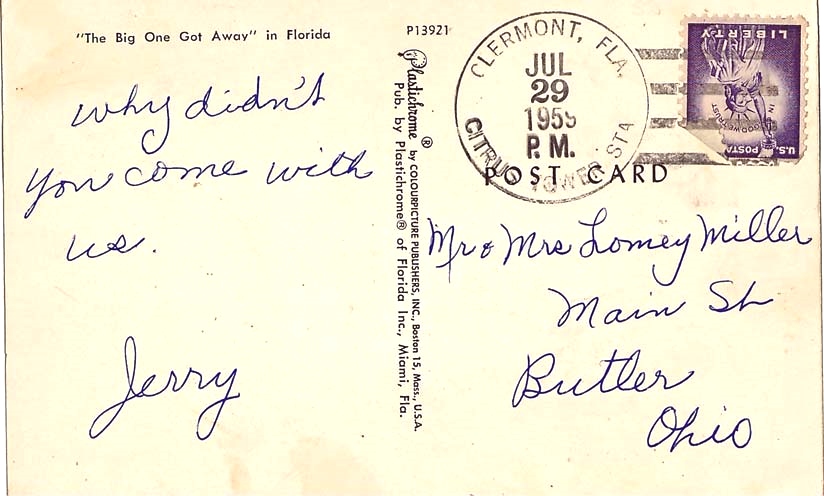 "The Big One Got Away" in Florida
why didn't
you come with
us.
Jerry
P13921
Plastichrome ® by COLOURPICTURE PUBLISHERS, INC., Boston 15, Mass., U.S.A.
Pub. by Plastichrome® of Florida Inc., Miami, Fla.
CLERMONT, FLA.
JUL
29
1959
P. M.
CITRUS TOWER STA
LIBERTY
IN GOD WE TRUST
U.S. POSTA
POST CARD
Mr & Mrs Lomey Miller
Main St
Butler
Ohio